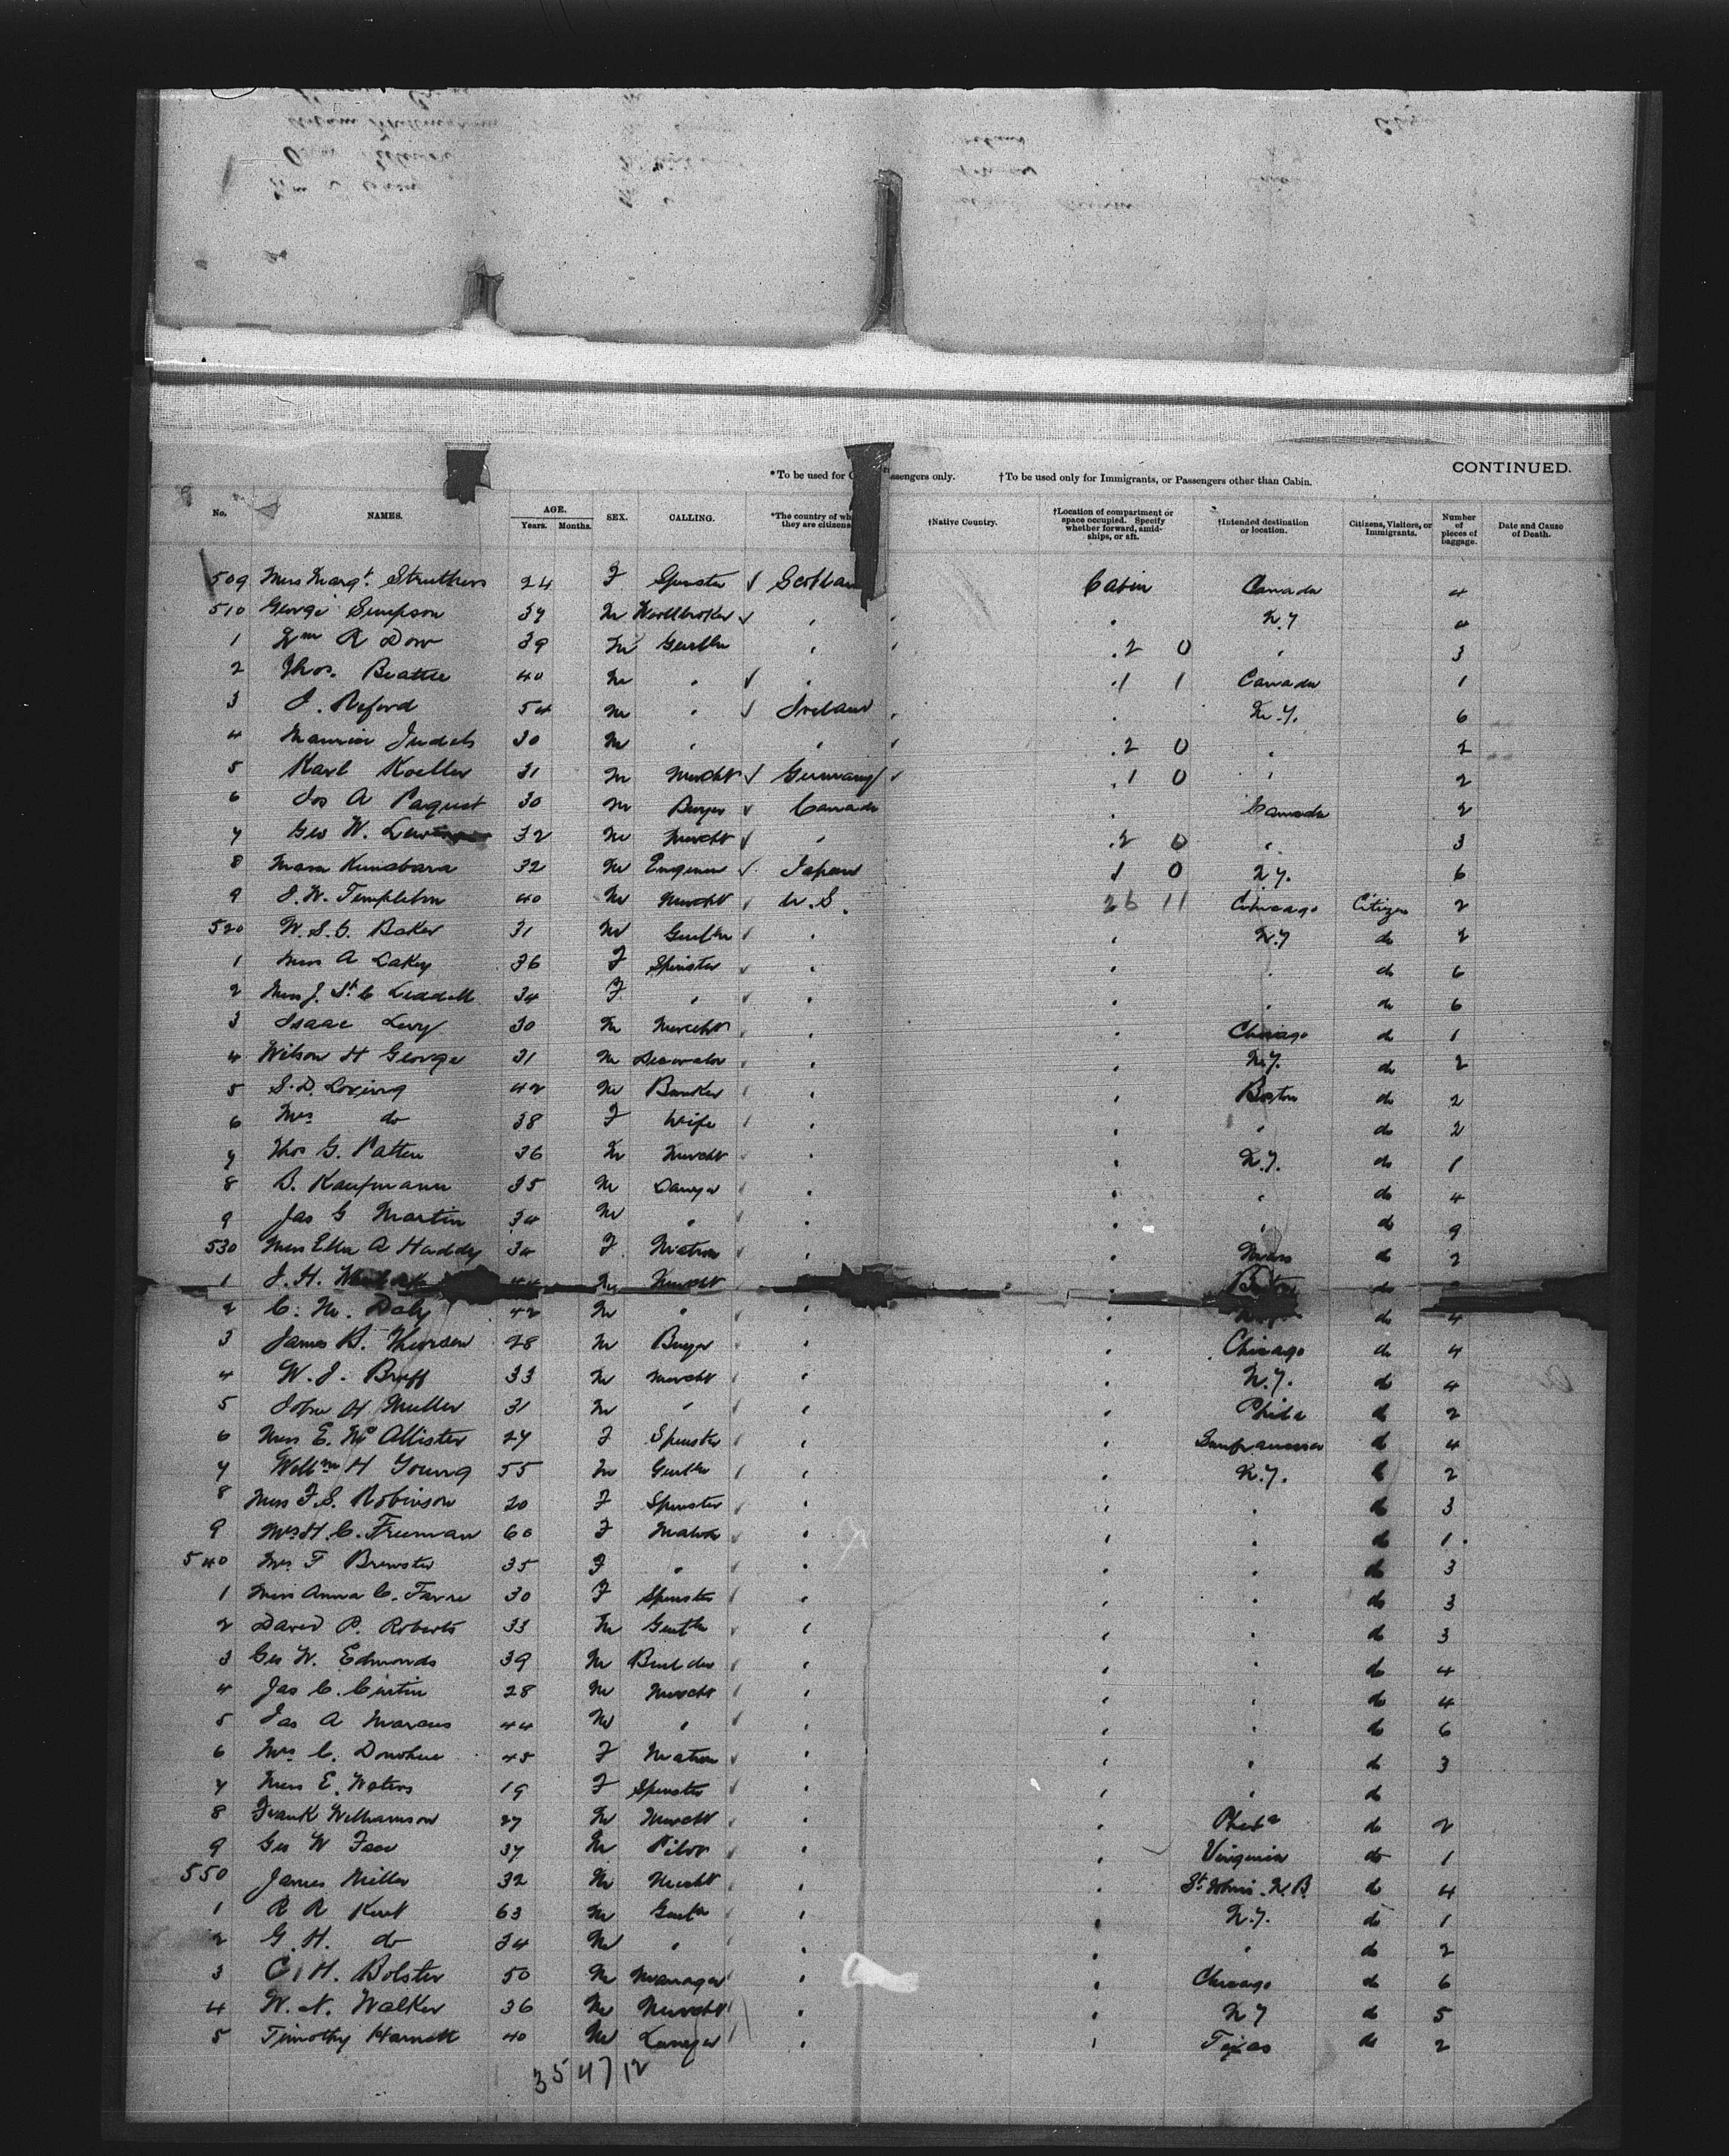 CONTINUED.
*To be used for C ssengers only. †To be used only for Immigrants, or Passengers other than Cabin.
No. NAMES. AGE. Years. Months. SEX. CALLING. *The country of wh they are citizens †Native Country. †Location of compartment or space occupied. Specify whether forward, amidships, or aft. †Intended destination or location. Citizens, Visitors, or Immigrants. Number of pieces of baggage. Date and Cause of Death.
509 Miss Margt. Struthers 24 F Spinster ✓ Scotlan Cabin Canada 4
510 George Simpson 37 M Woolbroker ✓ " " N.Y 4
1 Wm R Dow 39 M Gentln " " 2 0 " 3
2 Thos. Beattie 40 M " ✓ " 1 1 Canada 1
3 J. Reford 54 M " ✓ Ireland " N.Y. 6
4 Maurice Judels 30 M " " 2 0 " 2
5 Karl Koeller 31 M Mercht ✓ Germany 1 0 " 2
6 Jos A Paquet 30 M Buyer ✓ Canada " Canada 2
7 Geo W. 32 M Mercht ✓ " 2 0 " 3
8 Kuwabara 32 M Engineer ✓ Japan 1 0 N.Y. 6
9 J. W. Templeton 40 M Mercht U.S. 26 11 Chicago Citizen 2
520 W. S. G. Baker 31 M Gentln " " N.Y do 2
1 Miss A Lakey 36 F Spinster " " " do 6
2 Miss J. St C Liddell 34 F " " " " do 6
3 Isaac Levy 30 M Mercht " " Chicago do 1
4 Wilson H George 31 M Decorator " " N.Y. do 2
5 S. D. Loring 42 M Banker " " Boston do 2
6 Mrs do 38 F Wife " " " do 2
7 Thos G. Patten 36 M Mercht " " N.Y. do 1
8 B. Kaufmann 35 M Lawyer " " " do 4
9 Jas G Martin 34 M " " " " do 9
530 Miss Ella A Haddy 34 F Matron " " do 2
1 J. H. 44 M Mercht " Boston do
2 C. M. Daly 42 M " " " do 4
3 James B. 28 M Buyer " " Chicago do 4
4 W. J. Bruff 33 M Mercht " " N.Y. do 4
5 John H Muller 31 M " " " Phila do 2
6 Miss E. McAllister 27 F Spinster " " Sanfrancisco do 4
7 Willm H Young 55 M Gentln " " N.Y. do 2
8 Miss F. S. Robinson 20 F Spinster " " " do 3
9 Mrs H. C. Freeman 60 F Matron " " " do 1
540 Mrs F Brewster 35 F " " " " do 3
1 Miss Anna C. 30 F Spinster " " " do 3
2 David P. Roberts 33 M Gentln " " " do 3
3 Geo W. Edmonds 39 M Builder " " " do 4
4 Jas C. Curtin 28 M Mercht " " " do 4
5 Jas A Marcus 44 M " " " " do 6
6 Mrs C. Donohue 45 F Matron " " " do 3
7 Miss E. Waters 19 F Spinster " " " do
8 Frank Williamson 27 M Mercht " " Phila do 2
9 Geo W Face 37 M Pilot " " Virginia do 1
550 James Miller 32 M Mercht " " St. Johns. N.B. do 4
1 R R Kent 63 M Gentn " " N.Y. do 1
2 G. H. do 34 M " " " " do 2
3 C. H. Bolster 50 M Manager " " Chicago do 6
4 W. N. Walker 36 M Mercht " " N.Y do 5
5 Timothy Harnett 40 M Lawyer " " Texas do 2
35 47 12